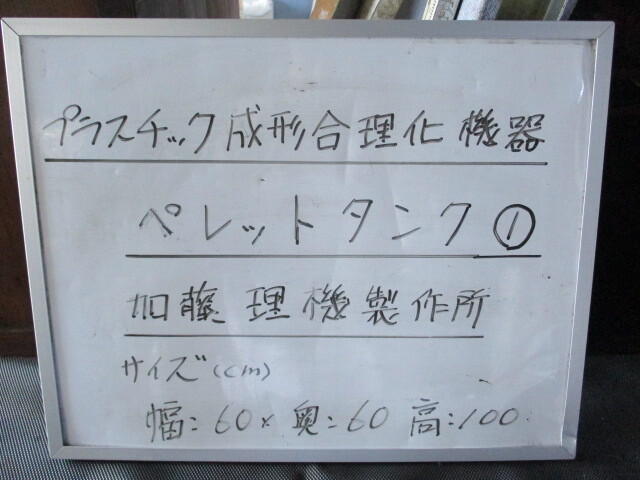 プラスチック成形合理化機器
ペレットタンク①
加藤理機製作所
サイズ(cm)
幅:60×奥:60 高:100